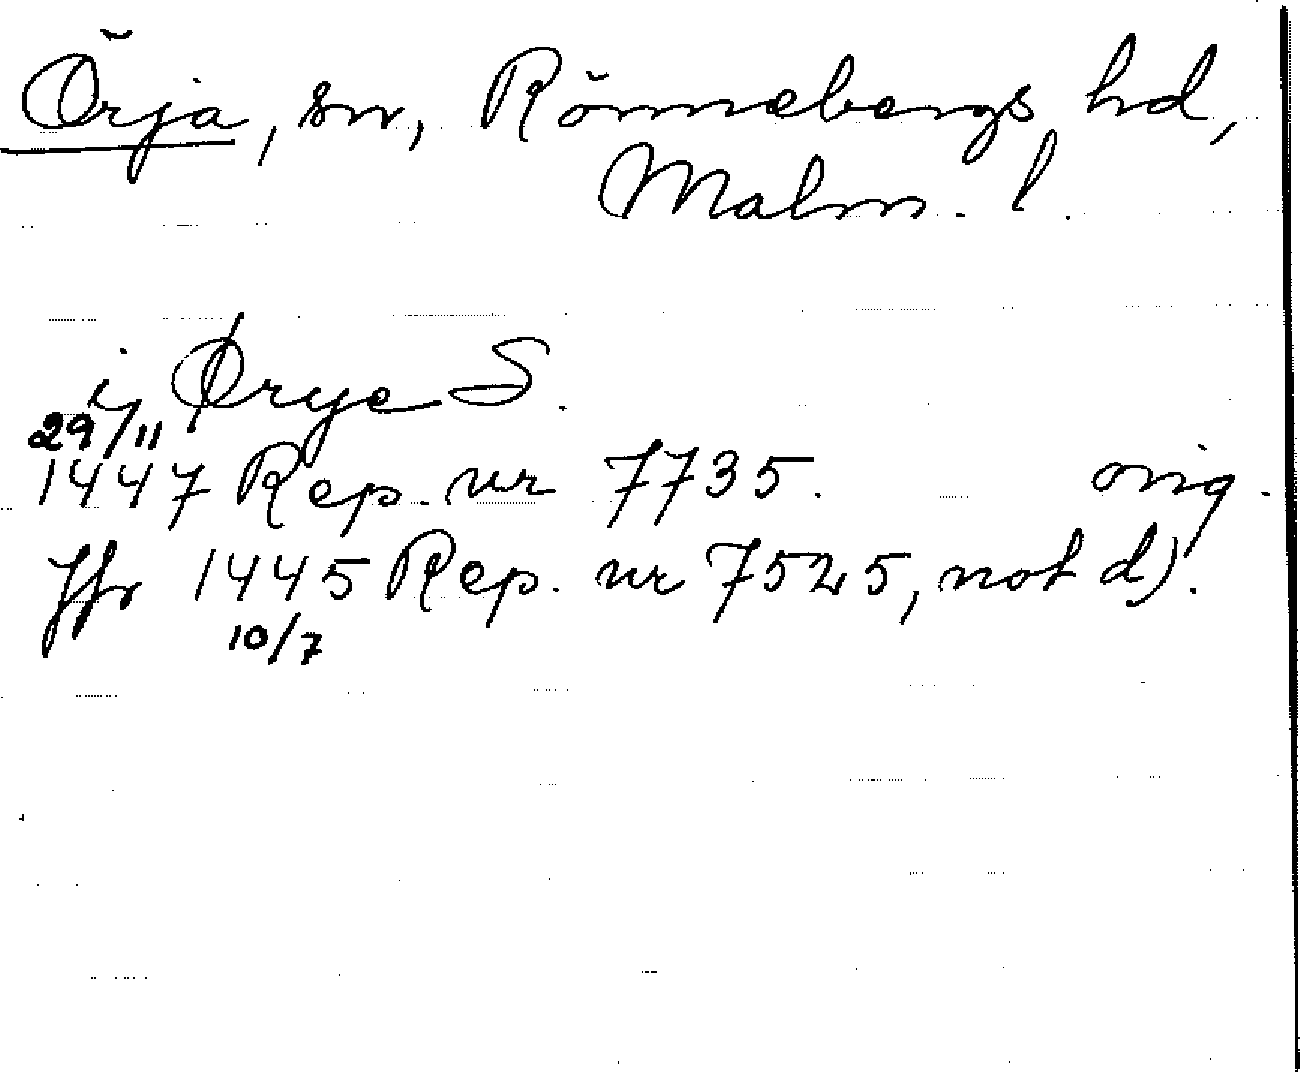 Örja, sn, Rönnebergs hd,
Malm. l.
i Ørye S.
29/11
1447 Rep. nr 7735. orig.
Jfr 1445 Rep. nr 7525, not d).
10/7